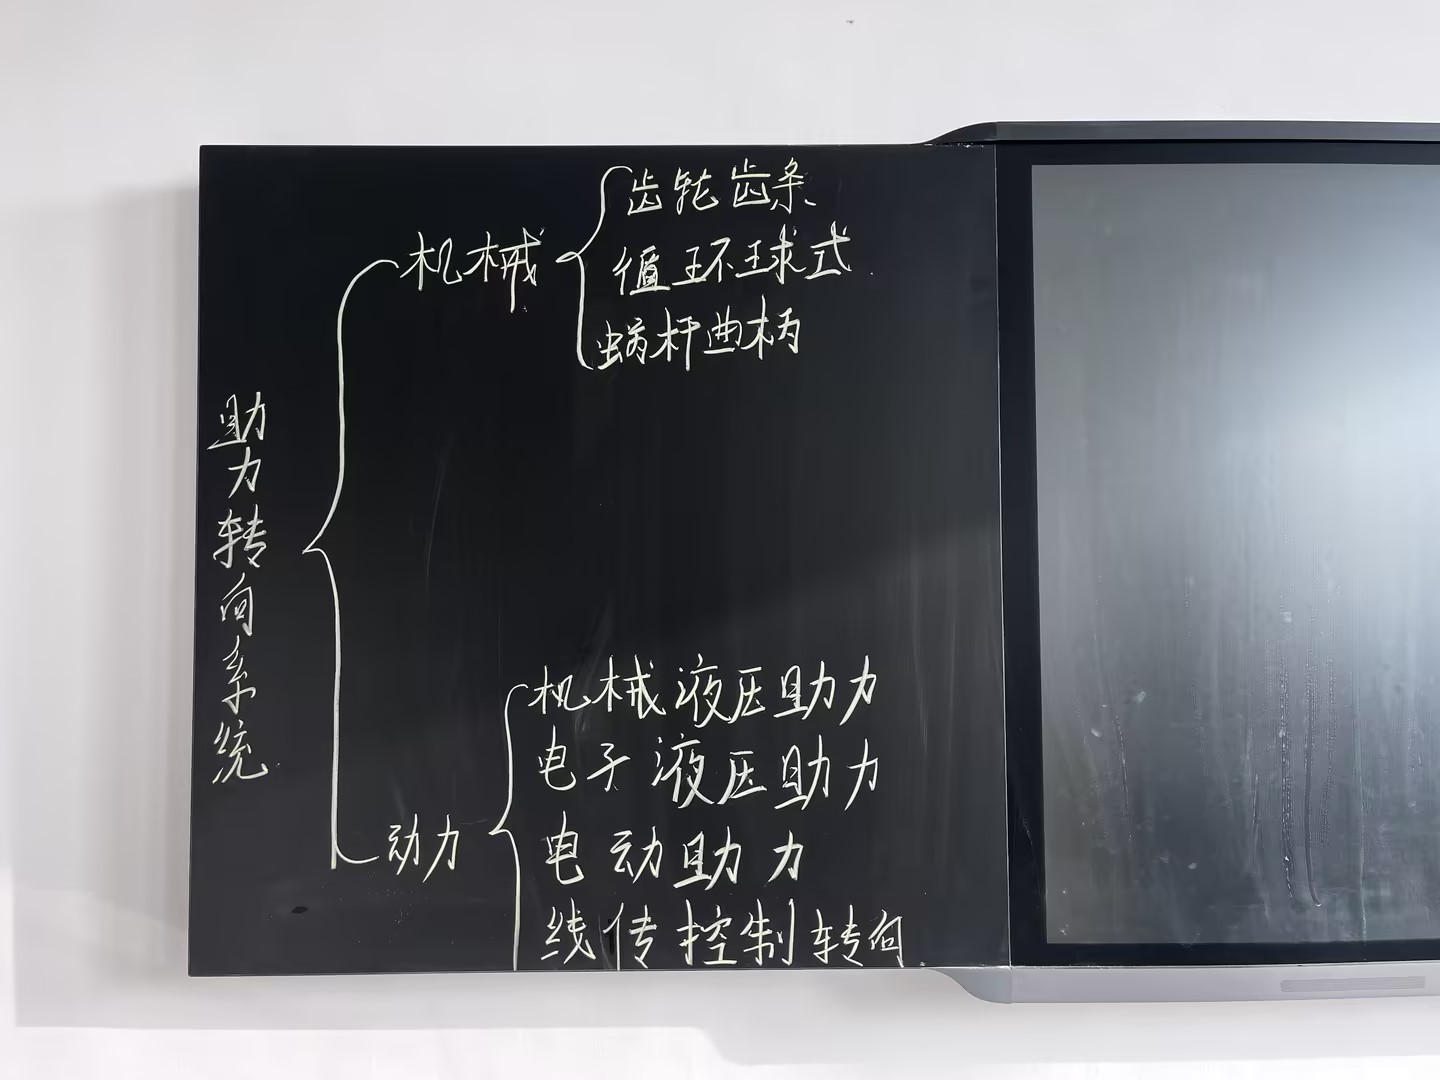 助力转向系统
机械
齿轮齿条
循环球式
蜗杆曲柄
动力
机械液压助力
电子液压助力
电动助力
线传控制转向